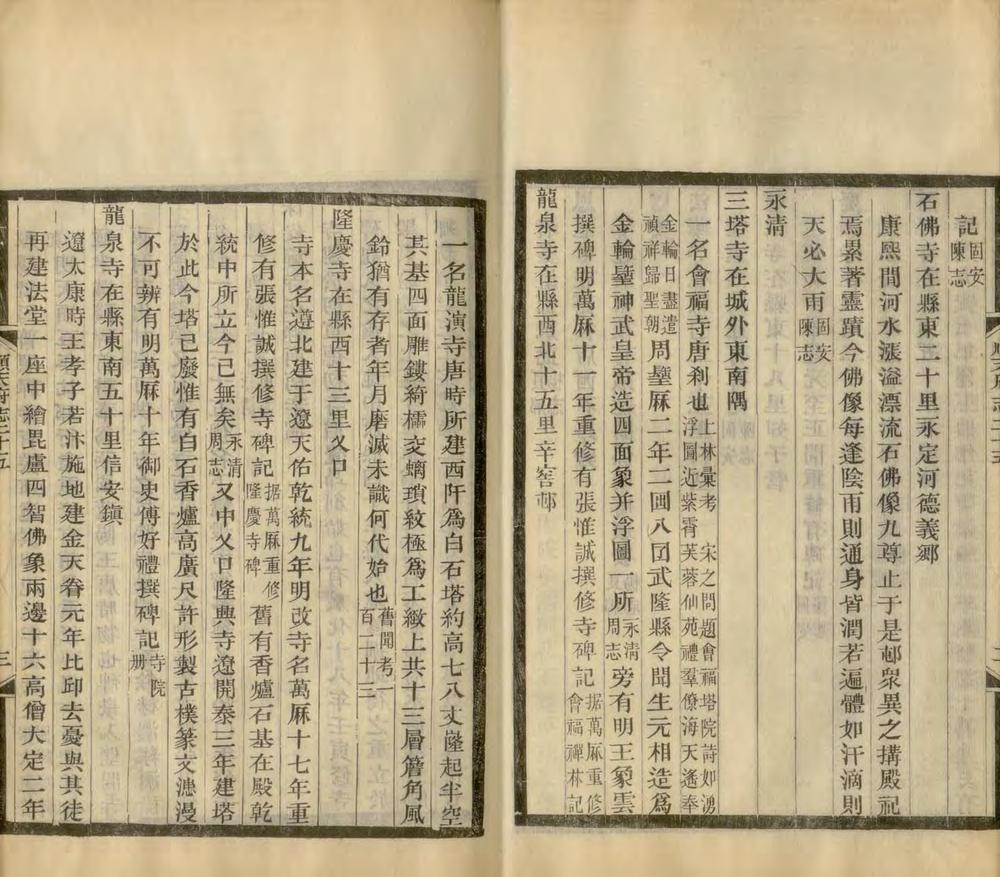 記固安陳志
石佛寺在縣東二十里永定河德義鄉
康熙間河水漲溢漂流石佛像九尊止于是邨衆異之搆殿祀
焉累著靈蹟今佛像每逢陰雨則通身皆潤若遍體如汗滴則
天必大雨固安陳志
永清
三塔寺在城外東南隅
一名會福寺唐刹也上林彙考 宋之問題會福塔院詩如湧浮圖近紫霄芙蓉仙苑禮羣僚海天遙奉
金輪日盡遣禎祥歸聖朝周壐厤二年二囸八囝武隆縣令聞生元相造爲
金輪壐神武皇帝造四面象并浮圖一所永清周志旁有明王象雲
撰碑明萬厤十一年重修有張惟誠撰修寺碑記据萬厤重修會福禪林記
龍泉寺在縣西北十五里辛窖邨
一名龍演寺唐時所建西阡爲白石塔約高七八丈巃起半空
其基四面雕鏤綺櫺交螭瑣紋極爲工緻上共十三層簷角風
鈴猶有存者年月磨滅未識何代始也舊聞考一百二十三
隆慶寺在縣西十三里乂口
寺本名遵北建于遼天佑乾統九年明改寺名萬厤十七年重
修有張惟誠撰修寺碑記据萬厤重修隆慶寺碑舊有香爐石基在殿乾
統中所立今已無矣永清周志又中乂口隆興寺遼開泰三年建塔
於此今塔已廢惟有白石香爐高廣尺許形製古樸篆文漶漫
不可辨有明萬厤十年御史傅好禮撰碑記寺院册
龍泉寺在縣東南五十里信安鎮
遼太康時王孝子若汴施地建金天眷元年比邱去憂與其徒
再建法堂一座中繪毘盧四智佛象兩邊十六高僧大定二年
順天府志二十五
三